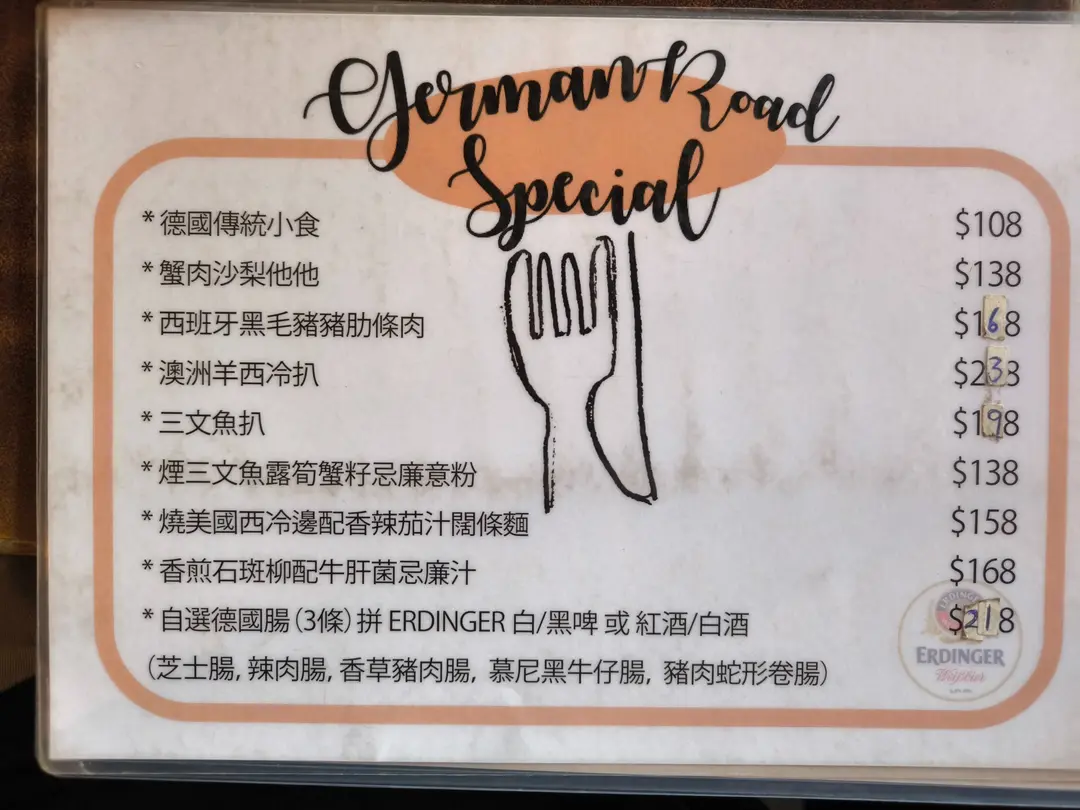 German Road
Special
* 德國傳統小食 $108
* 蟹肉沙梨他他 $138
* 西班牙黑毛豬豬肋條肉 $168
* 澳洲羊西冷扒 $233
* 三文魚扒 $198
* 煙三文魚露筍蟹籽忌廉意粉 $138
* 燒美國西冷邊配香辣茄汁闊條麵 $158
* 香煎石斑柳配牛肝菌忌廉汁 $168
* 自選德國腸 (3條) 拼 ERDINGER 白/黑啤 或 紅酒/白酒 $218
(芝士腸, 辣肉腸, 香草豬肉腸, 慕尼黑牛仔腸, 豬肉蛇形卷腸)
ERDINGER
Weißbier